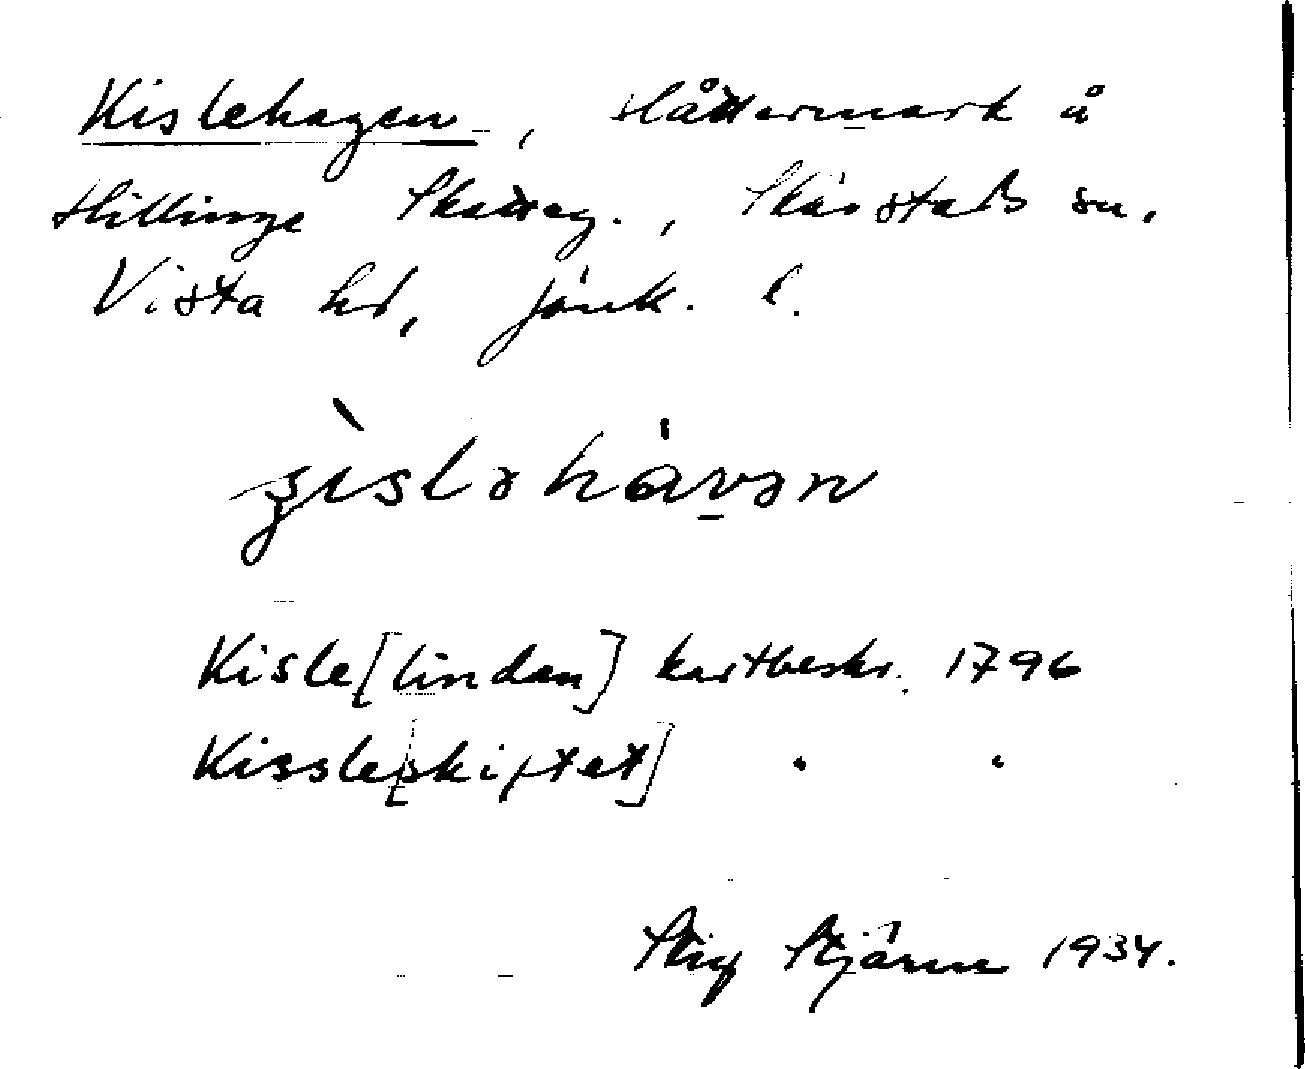 Kislehagen, slåttermark å
Hillinge Skatteg., Skärstads sn.
Vista hd, Jönk. l.
Kisle[linden] kartbeskr. 1796
Kissle[skiftet] " "
Stig Stjärn 1934.